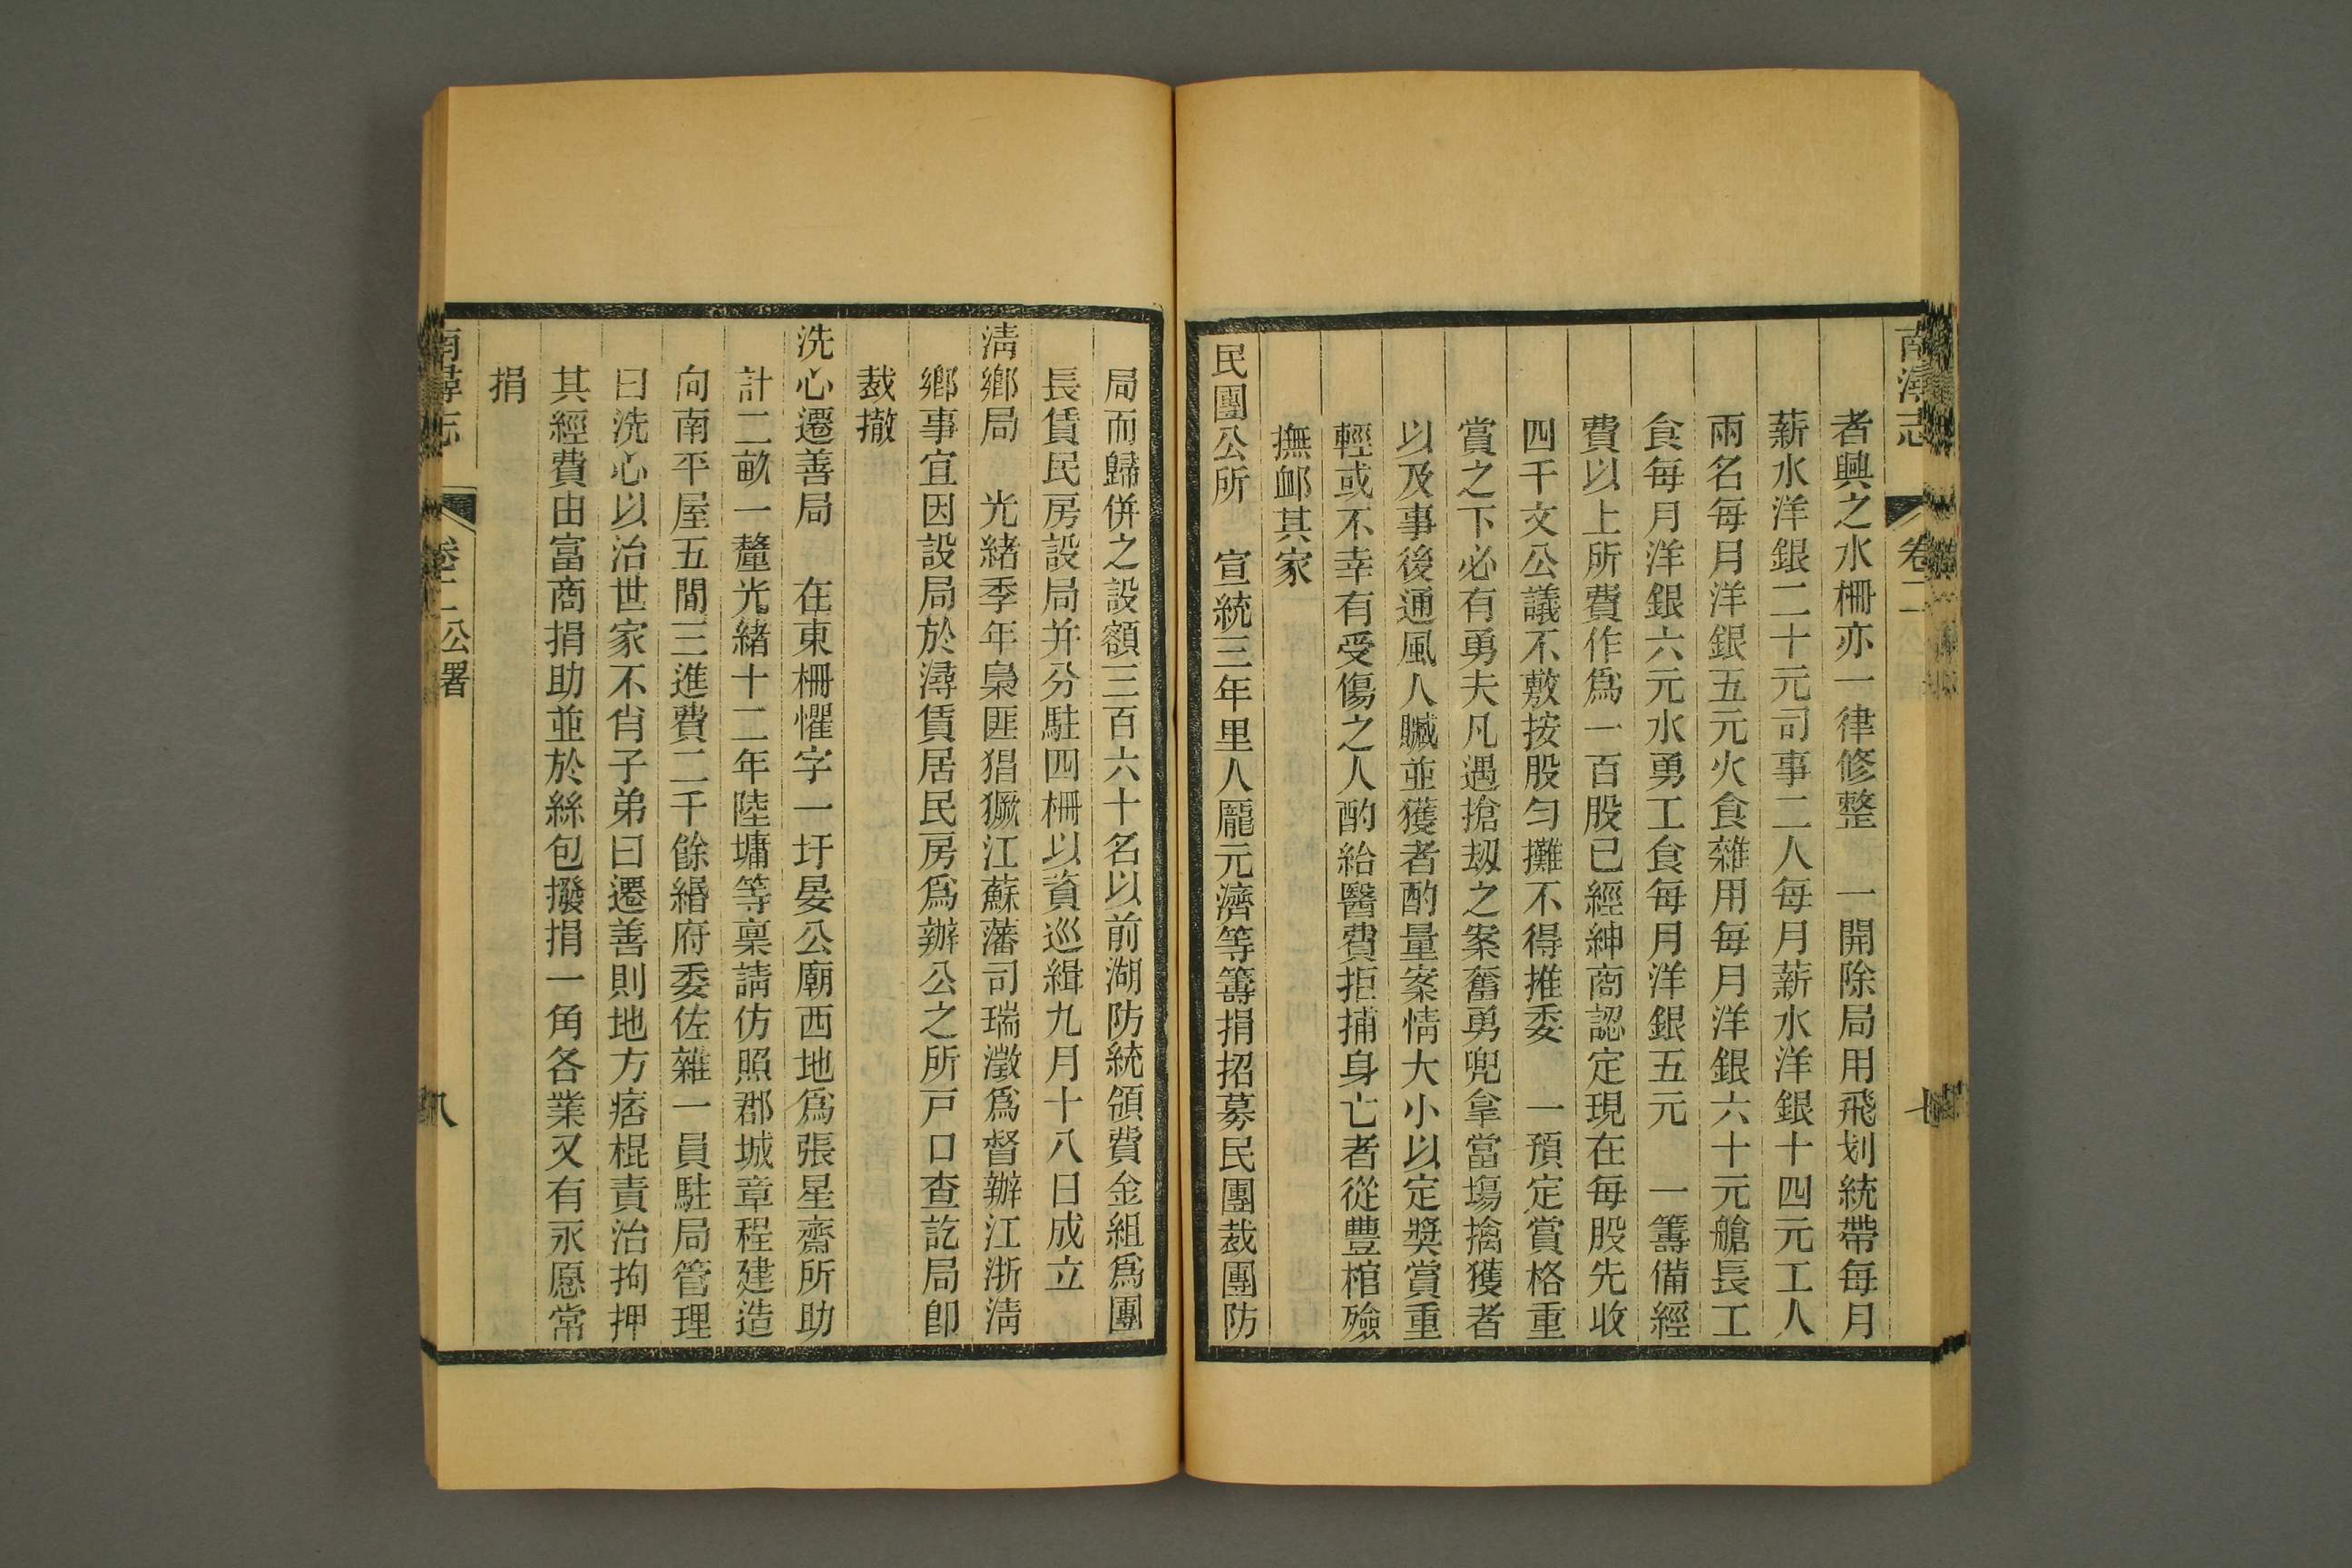 南潯志 卷二 七
者興之水柵亦一律修整 一開除局用飛划統帶每月
薪水洋銀二十元司事二人每月薪水洋銀十四元工人
兩名每月洋銀五元火食雜用每月洋銀六十元艙長工
食每月洋銀六元水勇工食每月洋銀五元 一籌備經
費以上所費作爲一百股已經紳商認定現在每股先收
四千文公議不敷按股匀攤不得推委 一預定賞格重
賞之下必有勇夫凡遇搶刼之案奮勇兜拿當塲擒獲者
以及事後通風人贓並獲者酌量案情大小以定獎賞重
輕或不幸有受傷之人酌給醫費拒捕身亡者從豐棺殮
撫衈其家
民團公所 宣統三年里人龐元濟等籌捐招募民團裁團防
局而歸併之設額三百六十名以前湖防統領費金組爲團
長賃民房設局并分駐四柵以資巡緝九月十八日成立
淸鄉局 光緒季年梟匪猖獗江蘇藩司瑞澂爲督辦江浙淸
鄉事宜因設局於潯賃居民房爲辦公之所戸口查訖局卽
裁撤
洗心遷善局 在東柵懼字一圩晏公廟西地爲張星齋所助
計二畝一釐光緒十二年陸墉等稟請仿照郡城章程建造
向南平屋五間三進費二千餘緡府委佐雜一員駐局管理
曰洗心以治世家不肖子弟曰遷善則地方痞棍責治拘押
其經費由富商捐助並於絲包撥捐一角各業又有永愿常
捐
南潯志 卷二 公署 八